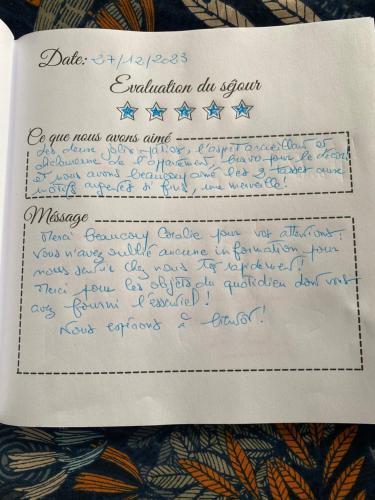 Date: 27/12/2023
Evaluation du séjour
Ce que nous avons aimé
Les deux jolis patios, l'aspect accueillant et
chaleureux de l'appartement, bravo pour le décor
et nous avons beaucoup aimé les 2 tasses avec
motifs argentés si fins, une merveille!
Méssage
Merci beaucoup Coralie pour vos attentions.
Vous n'avez oublié aucune information pour
nous sentir chez nous très rapidement!
Merci pour les objets du quotidien dont vous
avez fourni l'essentiel!
Nous espérons à bientôt!